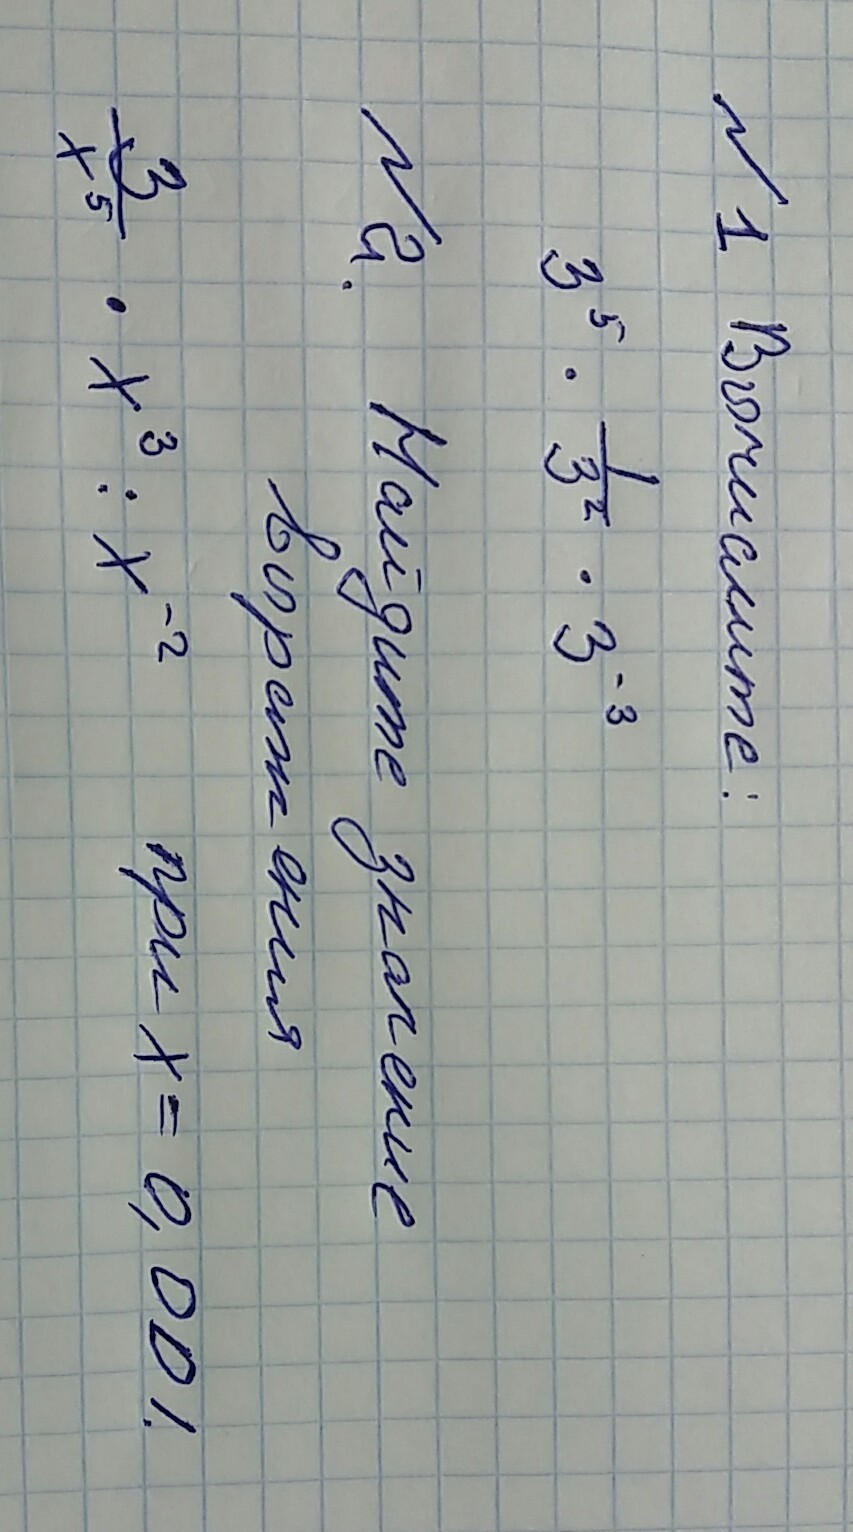 №1 Вычислите:
3⁵ · 1/3² · 3⁻³
№2. Найдите значение
выражения
3/x⁵ · x³ : x⁻² при x = 0,001